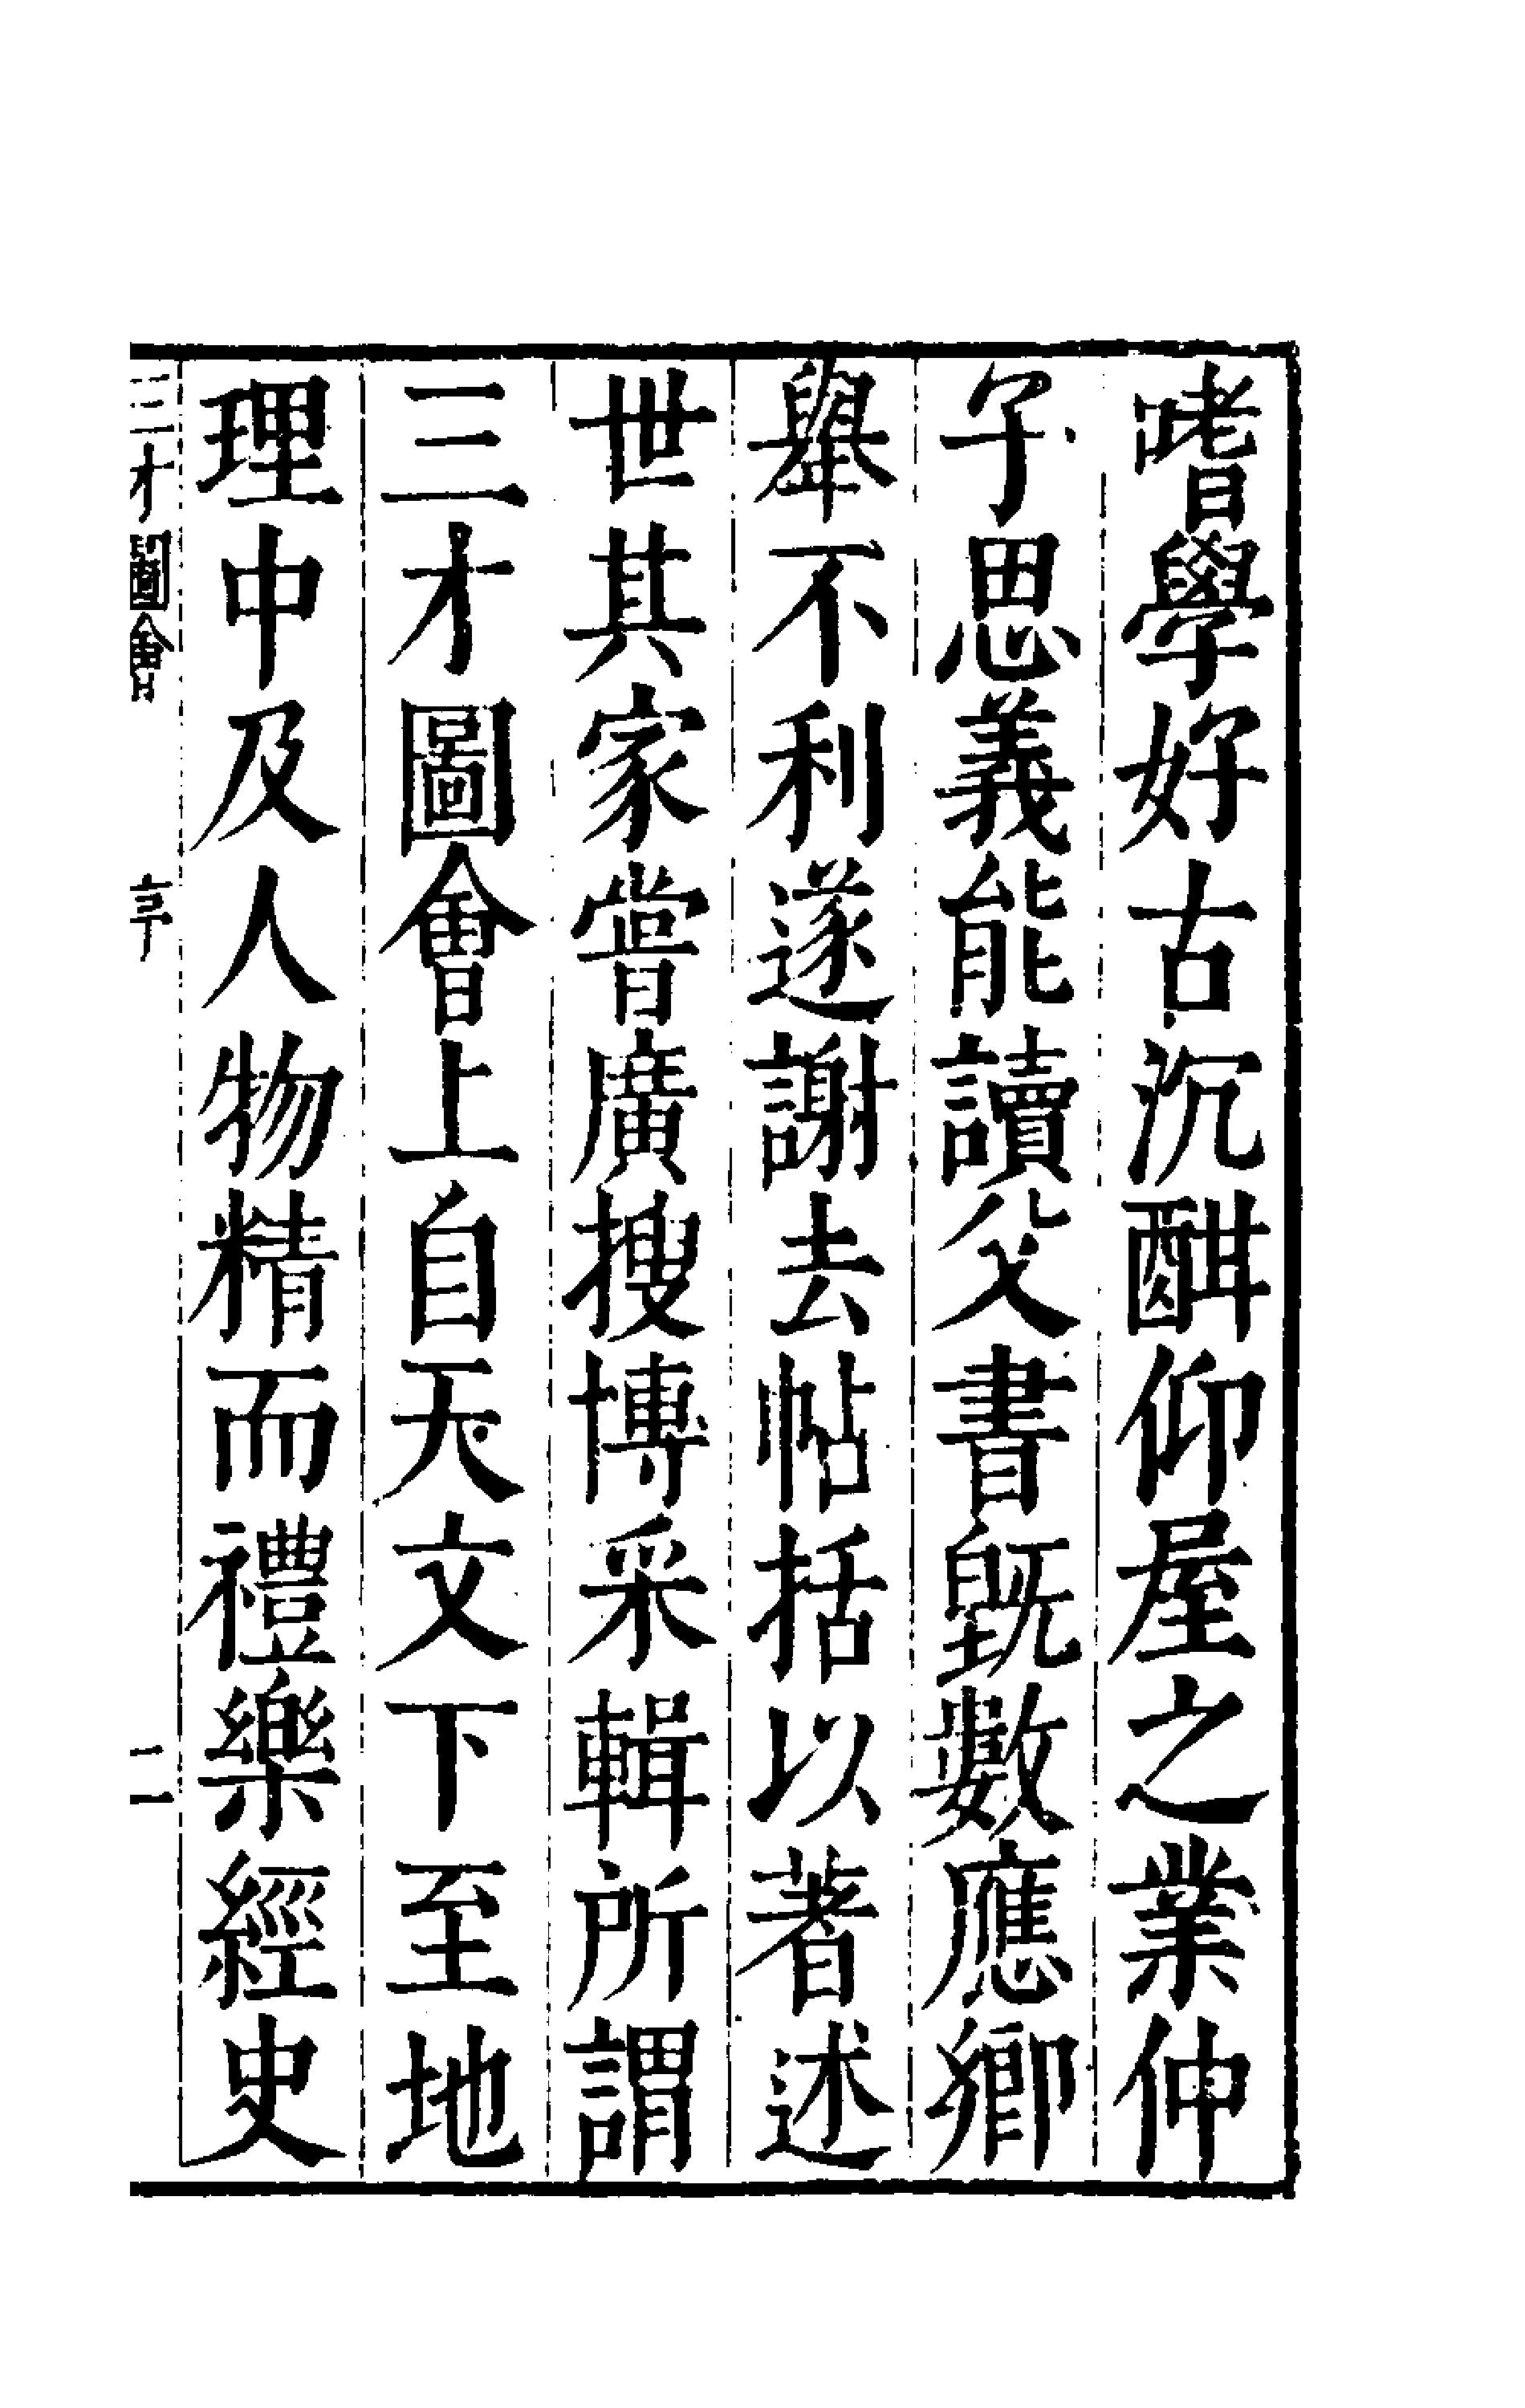 嗜學好古沉酣仰屋之業仲
子思義能讀父書旣數應鄉
舉不利遂謝去帖括以著述
世其家嘗廣搜博采輯所謂
三才圖會上自天文下至地
理中及人物精而禮樂經史
三才圖會 序 二